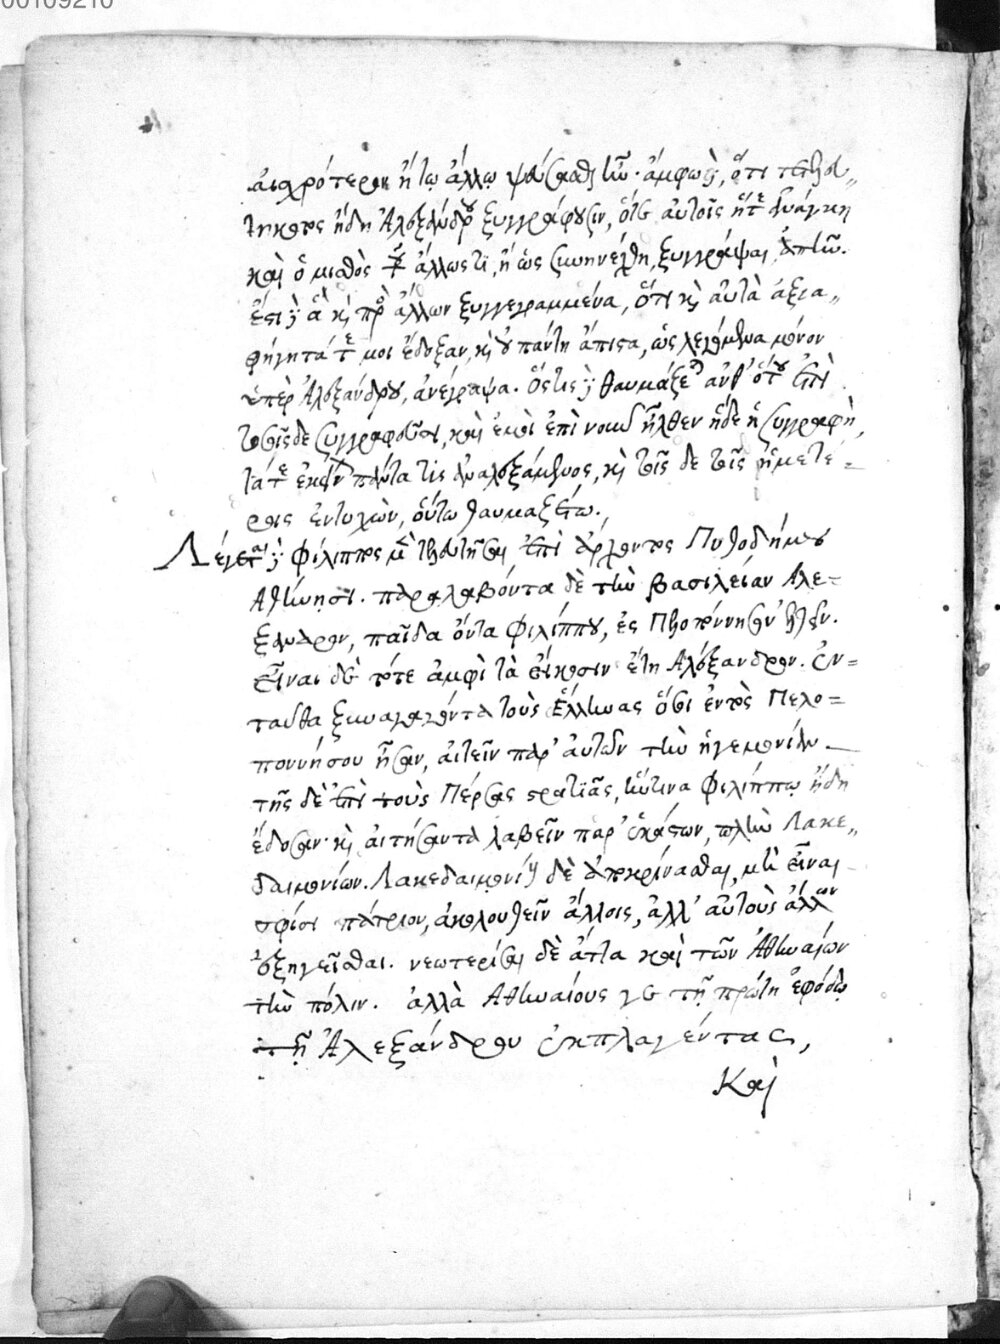 00109210
αἰσχρότερον ἤ τῳ ἄλλῳ ψεύσασθαι ἦν· ἄμφω δὲ, ὅτι τετελευ-
τηκότος ἤδη Ἀλεξάνδρου ξυγγράφουσιν, ὅτε αὐτοῖς ἥτε ἀνάγκη
καὶ ὁ μισθὸς τοῦ ἄλλως τι, ἢ ὡς ξυνηνέχθη, ξυγγράψαι, ἀπῆν.
ἔστι δὲ ἃ καὶ πρὸς ἄλλων ξυγγεγραμμένα, ὅτι καὶ αὐτὰ ἀξια-
φήγητά τέ μοι ἔδοξαν, καὶ οὐ πάντη ἄπιστα, ὡς λεγόμενα μόνον
ὑπὲρ Ἀλεξάνδρου, ἀνέγραψα. Ὅστις δὲ θαυμάζεται ἀνθ' ὅτου ἐπὶ
τοῖσδε συγγραφεῦσι, καὶ ἐμοὶ ἐπὶ νοῦν ἦλθεν ἥδε ἡ συγγραφὴ,
τά τε ἐκείνων πάντα τὶς ἀναλεξάμενος, καὶ τοῖς δε τοῖς ἡμετέ-
ροις ἐντυχὼν, οὕτω θαυμαζέτω.
Λέγεται δὲ Φίλιππος μὲν τελευτῆσαι ἐπὶ ἄρχοντος Πυθοδήμου
Ἀθήνησι. παραλαβόντα δὲ τὴν βασιλείαν Ἀλέ-
ξανδρον, παῖδα ὄντα Φιλίππου, ἐς Πελοπόννησον ἐλθεῖν.
εἶναι δὲ τότε ἀμφὶ τὰ εἴκοσιν ἔτη Ἀλέξανδρον. ἐν-
ταῦθα ξυναγαγόντα τοὺς Ἕλληνας ὅσοι ἐντὸς Πελο-
ποννήσου ἦσαν, αἰτεῖν παρ' αὐτῶν τὴν ἡγεμονίαν
τῆς δὲ ἐπὶ τοὺς Πέρσας στρατιᾶς, ἥντινα Φιλίππῳ ἤδη
ἔδοσαν· καὶ αἰτήσαντα λαβεῖν παρ' ἑκάστων, πλὴν Λακε-
δαιμονίων. Λακεδαιμονίους δὲ ἀποκρίνασθαι, μὴ εἶναι
σφίσι πάτριον, ἀκολουθεῖν ἄλλοις, ἀλλ' αὐτοὺς ἄλλων
ἐξηγεῖσθαι. νεωτερίσαι δὲ ἄττα καὶ τῶν Ἀθηναίων
τὴν πόλιν. ἀλλὰ Ἀθηναίους γε τῇ πρώτῃ ἐφόδῳ
τῇ Ἀλεξάνδρου ἐκπλαγέντας,
Καὶ